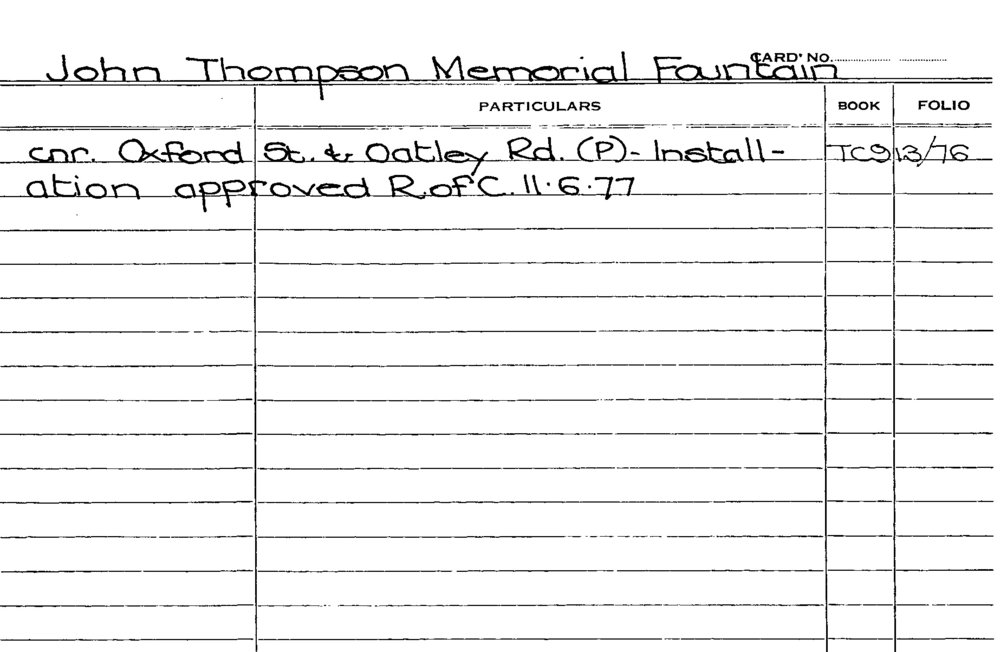 John Thompson Memorial Fountain CARD NO.
PARTICULARS BOOK FOLIO
cnr. Oxford St. & Oatley Rd. (P)- Install- TC913/76
ation approved R.ofC. 11.6.77